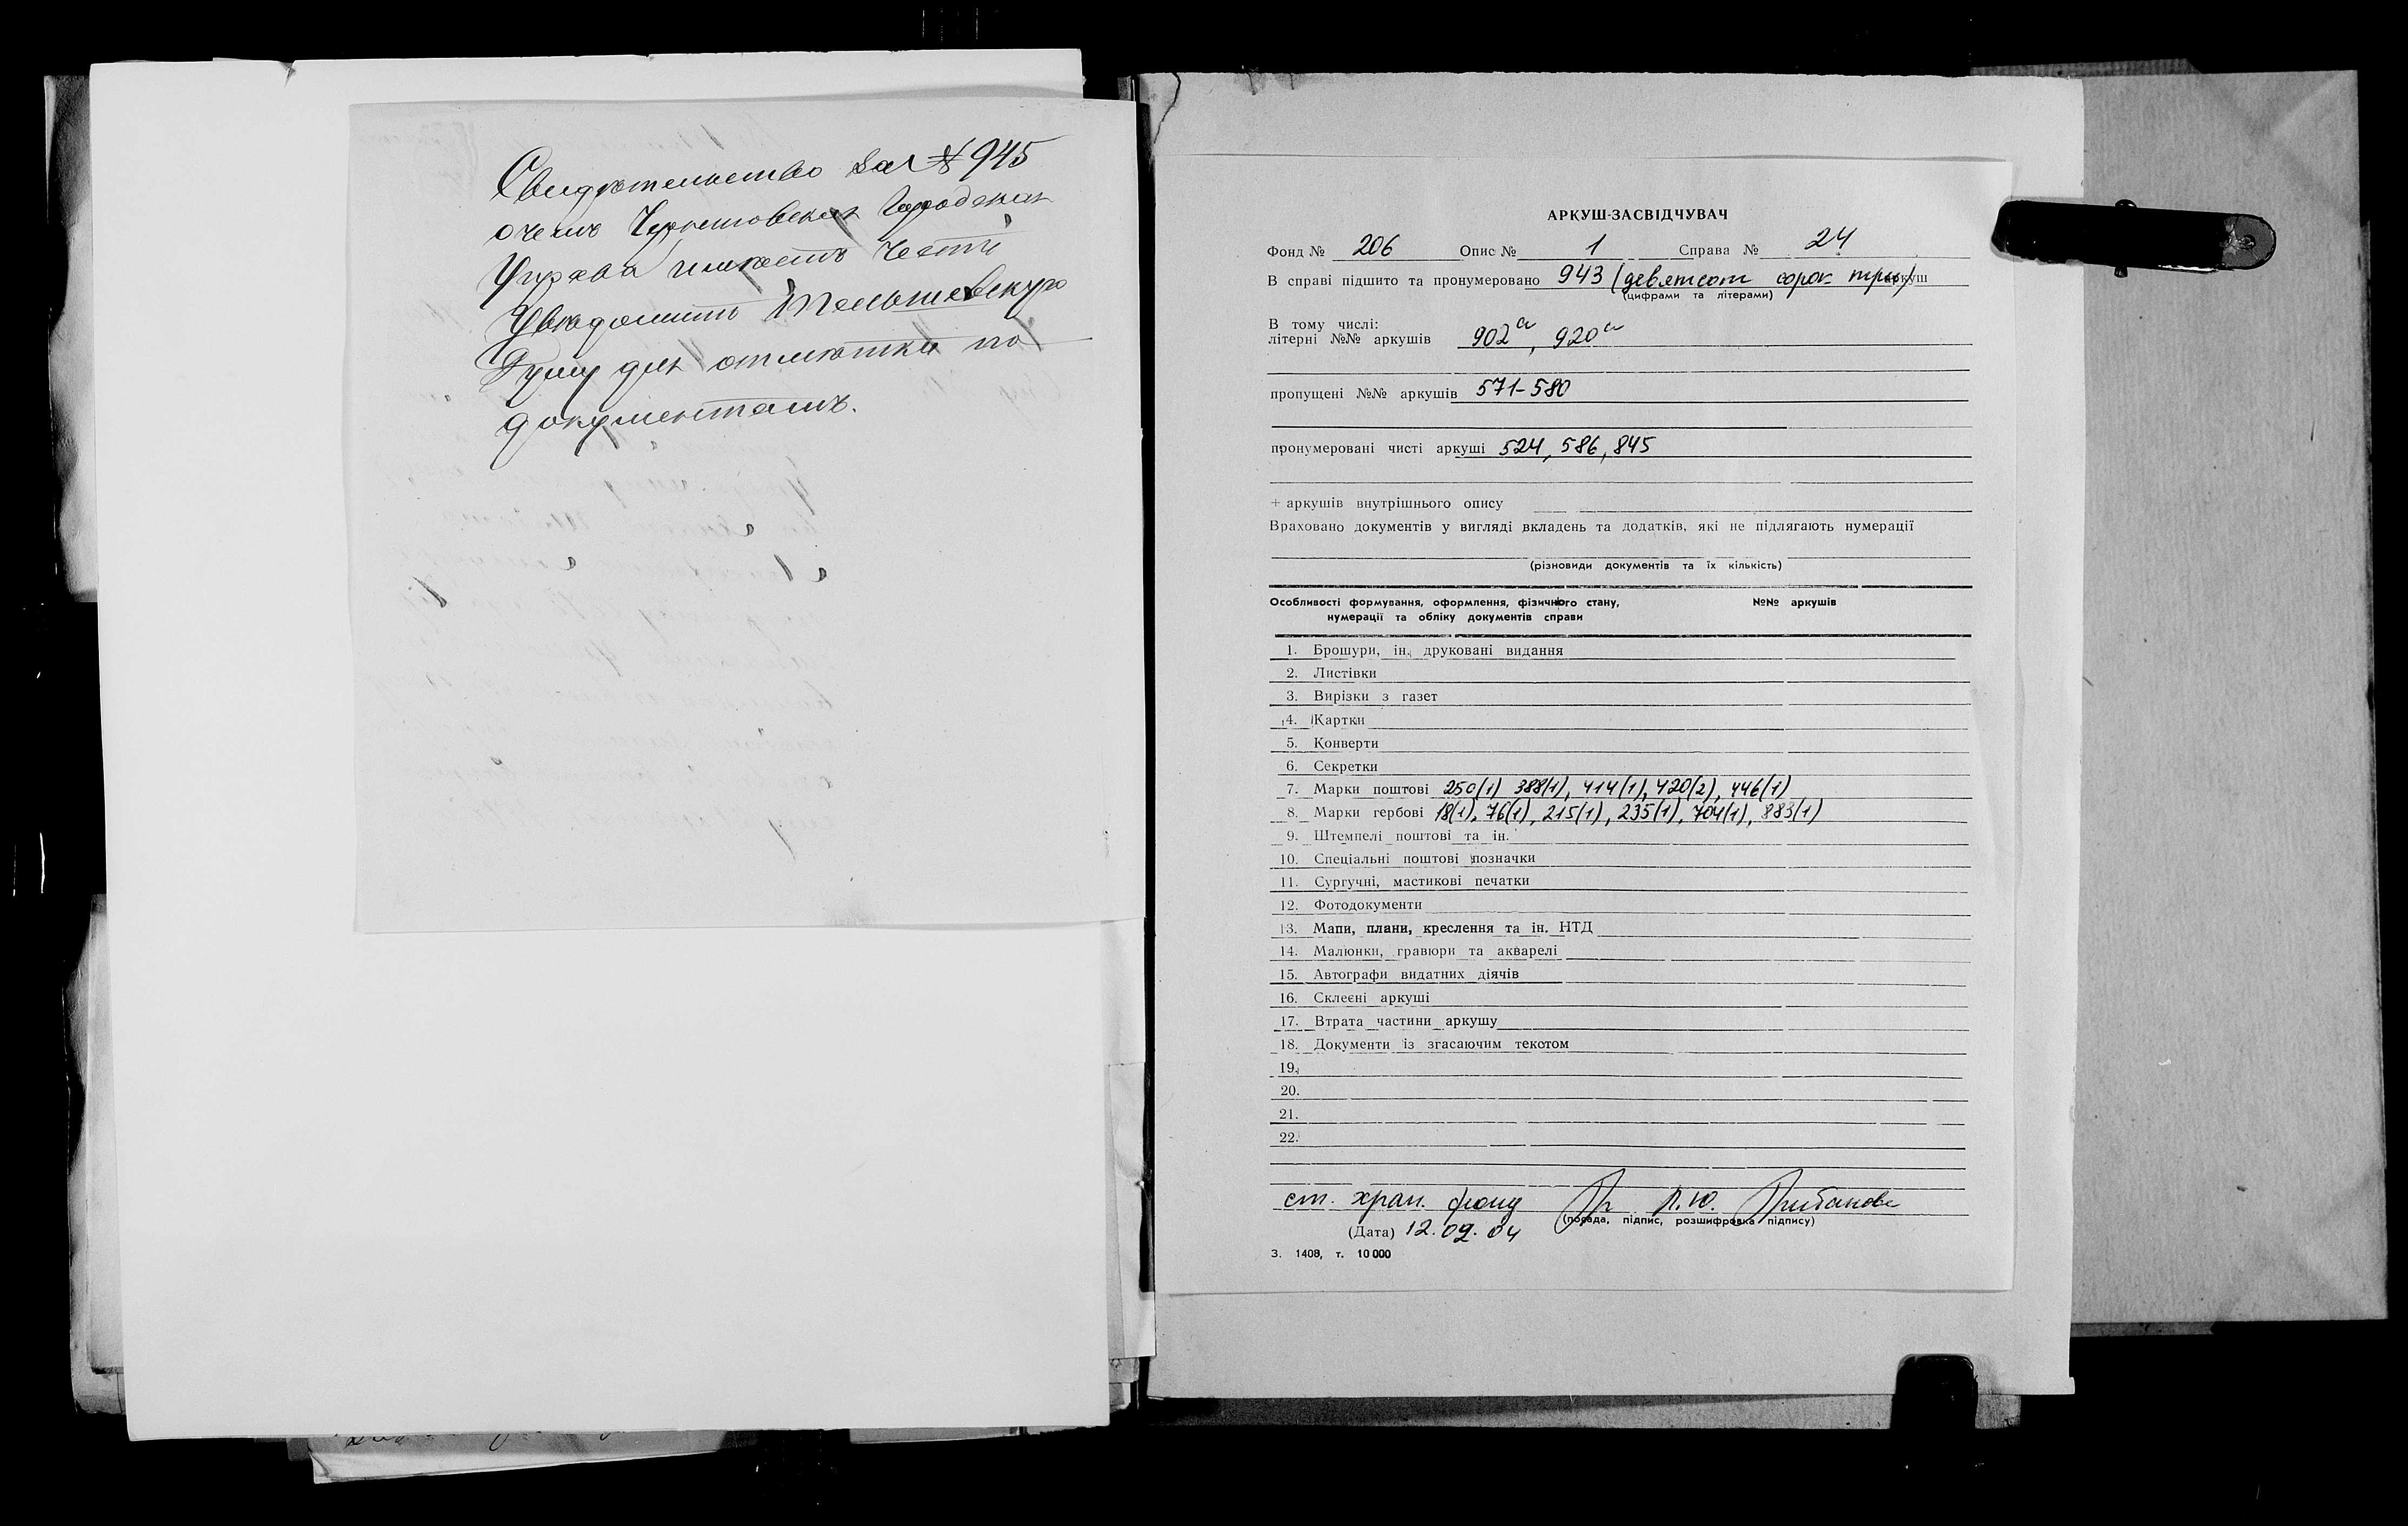 Свидѣтельство за № 945
о чемъ Черниговская Городская
Управа имѣетъ честь
Увѣдомить
Думу для отмѣтки по
документамъ.
АРКУШ-ЗАСВІДЧУВАЧ
Фонд № 206 Опис № 1 Справа № 24
В справі підшито та пронумеровано 943 (девятсот сорок три) аркуш
(цифрами та літерами)
В тому числі:
літерні №№ аркушів 902а, 920а
пропущені №№ аркушів 571-580
пронумеровані чисті аркуші 524, 586, 845
+ аркушів внутрішнього опису
Враховано документів у вигляді вкладень та додатків, які не підлягають нумерації
(різновиди документів та їх кількість)
Особливості формування, оформлення, фізичного стану, №№ аркушів
нумерації та обліку документів справи
1. Брошури, ін. друковані видання
2. Листівки
3. Вирізки з газет
4. Картки
5. Конверти
6. Секретки
7. Марки поштові 250(1) 388(1), 414(1), 420(2), 446(1)
8. Марки гербові 18(1), 76(1), 215(1), 235(1), 704(1), 883(1)
9. Штемпелі поштові та ін.
10. Спеціальні поштові позначки
11. Сургучні, мастикові печатки
12. Фотодокументи
13. Мапи, плани, креслення та ін. НТД
14. Малюнки, гравюри та акварелі
15. Автографи видатних діячів
16. Склеєні аркуші
17. Втрата частини аркушу
18. Документи із згасаючим текстом
19.
20.
21.
22.
ст. хран. фонд Л.Ю.
(посада, підпис, розшифровка підпису)
(Дата) 12.02.04
З. 1408, т. 10 000